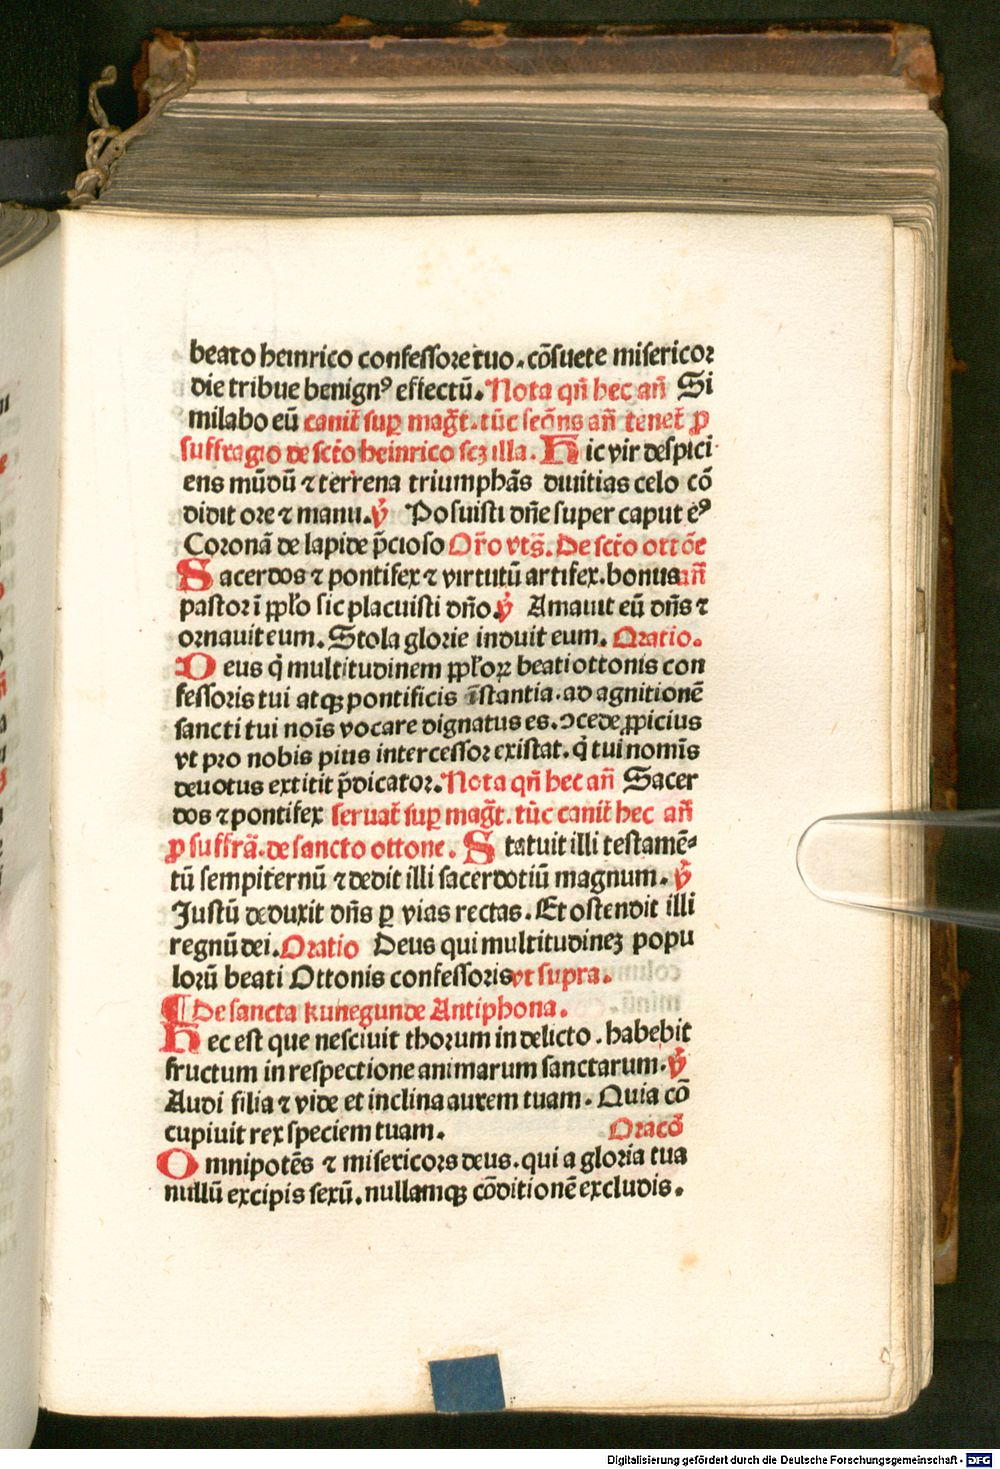 beato heinrico confessore tuo. cōsuete misericor
die tribue benignꝰ effectū. Nota qn̄ hec an̄ Si
milabo eū canit᷑ suꝑ mag̅t. tūc seq̄ns an̄ tenet᷑ ꝓ
suffragio de sct̄o heinrico scꝫ illa. Hic vir despici
ens mūdū ⁊ terrena triumphās diuitias celo cō
didit ore ⁊ manu. ꝟ Posuisti dn̄e super caput eꝰ
Coronā de lapide p̄cioso Or̄o vts̄. De sct̄o ottōe
Sacerdos ⁊ pontifex ⁊ virtutū artifex. bonus an̄
pastor ī pplo sic placuisti dn̄o. ꝟ Amauit eū dn̄s ⁊
ornauit eum. Stola glorie induit eum. Oratio.
Deus q̇ multitudinem pploꝝ beati ottonis con
fessoris tui atqꝫ pontificis īstantia. ad agnitionē
sancti tui nois̄ vocare dignatus es. ↄcede ꝓpicius
vt pro nobis pius intercessor existat. q̇ tui nomīs
deuotus extitit p̄dicator. Nota qn̄ hec an̄ Sacer
dos ⁊ pontifex seruat᷑ suꝑ mag̅t. tūc canit᷑ hec an̄
ꝓ suffrā. de sancto ottone. Statuit illi testamē⸗
tū sempiternū ⁊ dedit illi sacerdotiū magnum. ꝟ
Justū deduxit dn̄s ꝑ vias rectas. Et ostendit illi
regnū dei. Oratio Deus qui multitudineꝫ popu
lorū beati Ottonis confessoris vt supra.
¶ De sancta kunegunde Antiphona.
Hec est que nesciuit thorum in delicto. habebit
fructum in respectione animarum sanctarum. ꝟ
Audi filia ⁊ vide et inclina aurem tuam. Quia cō
cupiuit rex speciem tuam. Oracō
Omnipotēs ⁊ misericors deus. qui a gloria tua
nullū excipis sexū. nullamqꝫ cōditionē excludis.
Digitalisierung gefördert durch die Deutsche Forschungsgemeinschaft - DFG